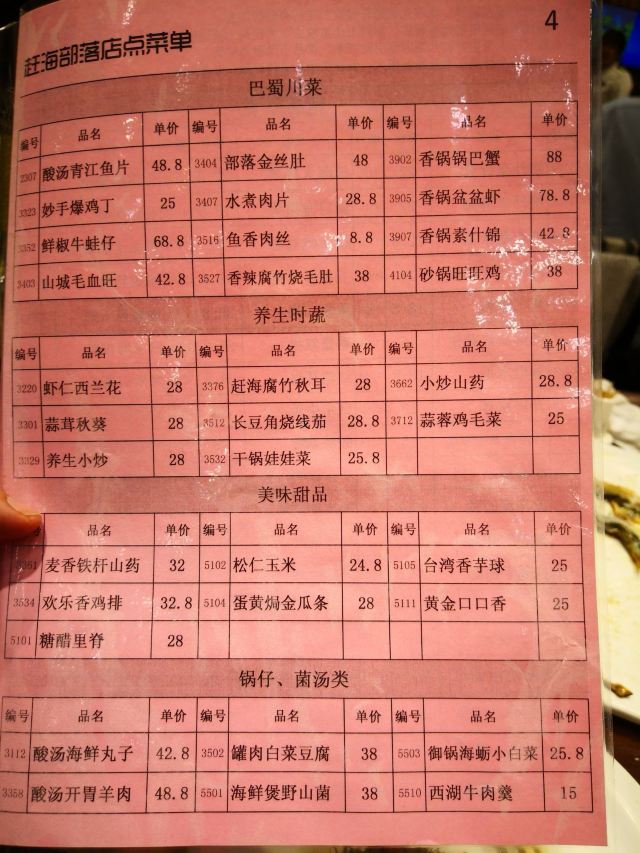 4
赶海部落店点菜单
巴蜀川菜
编号 品名 单价 编号 品名 单价 编号 品名 单价
2307 酸汤青江鱼片 48.8 3404 部落金丝肚 48 3902 香锅锅巴蟹 88
3323 妙手爆鸡丁 25 3407 水煮肉片 28.8 3905 香锅盆盆虾 78.8
3352 鲜椒牛蛙仔 68.8 3516 鱼香肉丝 8.8 3907 香锅素什锦 42.8
3403 山城毛血旺 42.8 3527 香辣腐竹烧毛肚 38 4104 砂锅旺旺鸡 38
养生时蔬
编号 品名 单价 编号 品名 单价 编号 品名 单价
3220 虾仁西兰花 28 3376 赶海腐竹秋耳 28 3662 小炒山药 28.8
3301 蒜茸秋葵 28 3512 长豆角烧线茄 28.8 3712 蒜蓉鸡毛菜 25
3329 养生小炒 28 3532 干锅娃娃菜 25.8
美味甜品
号 品名 单价 编号 品名 单价 编号 品名 单价
3361 麦香铁杆山药 32 5102 松仁玉米 24.8 5105 台湾香芋球 25
3534 欢乐香鸡排 32.8 5104 蛋黄焗金瓜条 28 5111 黄金口口香 25
5101 糖醋里脊 28
锅仔、菌汤类
编号 品名 单价 编号 品名 单价 编号 品名 单价
3112 酸汤海鲜丸子 42.8 3502 罐肉白菜豆腐 38 5503 御锅海蛎小白菜 25.8
3358 酸汤开胃羊肉 48.8 5501 海鲜煲野山菌 38 5510 西湖牛肉羹 15